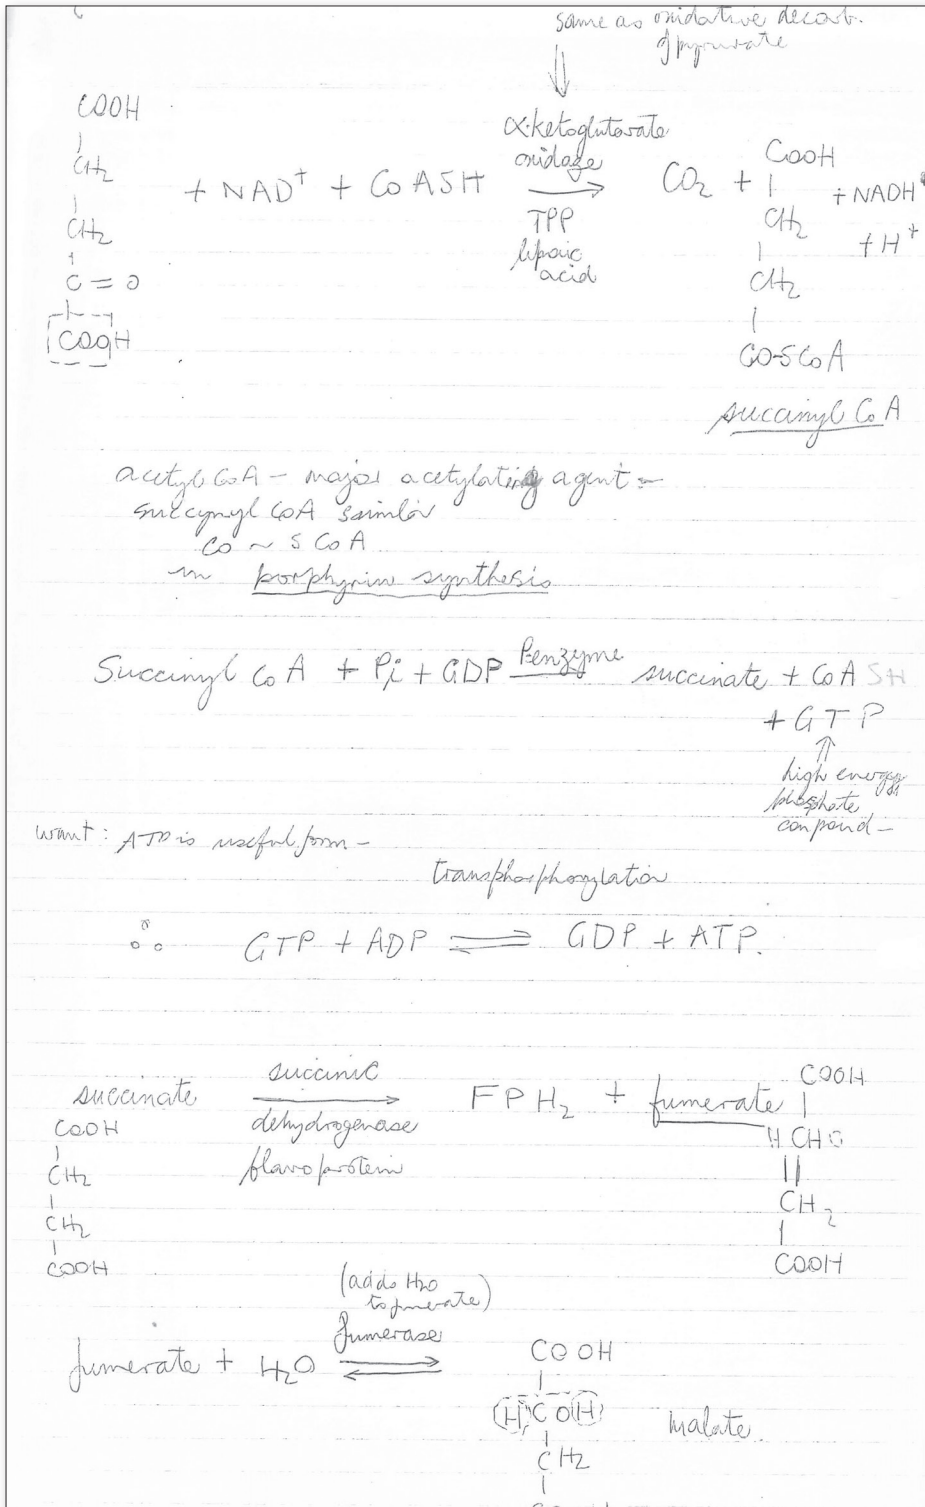 same as oxidative decarb.
of pyruvate
COOH
CH2
CH2
C = O
COOH
+ NAD+ + CoASH
α-ketoglutorate
oxidase
TPP
lipoic
acid
CO2 +
COOH
CH2
CH2
CO-SCoA
+ NADH
+ H+
succinyl CoA
acetyl CoA – major acetylating agent –
succynyl CoA similar
CO ~ S CoA
in porphyrin synthesis
Succinyl CoA + Pi + GDP P-enzyme succinate + CoA SH
+ GTP
high energy
phosphate
compound –
want: ATP is useful form –
transphosphorylation
∴ GTP + ADP ⇌ GDP + ATP.
succinate
COOH
CH2
CH2
COOH
succinic
dehydrogenase
flavoprotein
FPH2 + fumerate
COOH
CH2
COOH
(adds H2O
to fumerate)
fumerase
fumerate + H2O ⇌
COOH
H C OH
CH2
malate